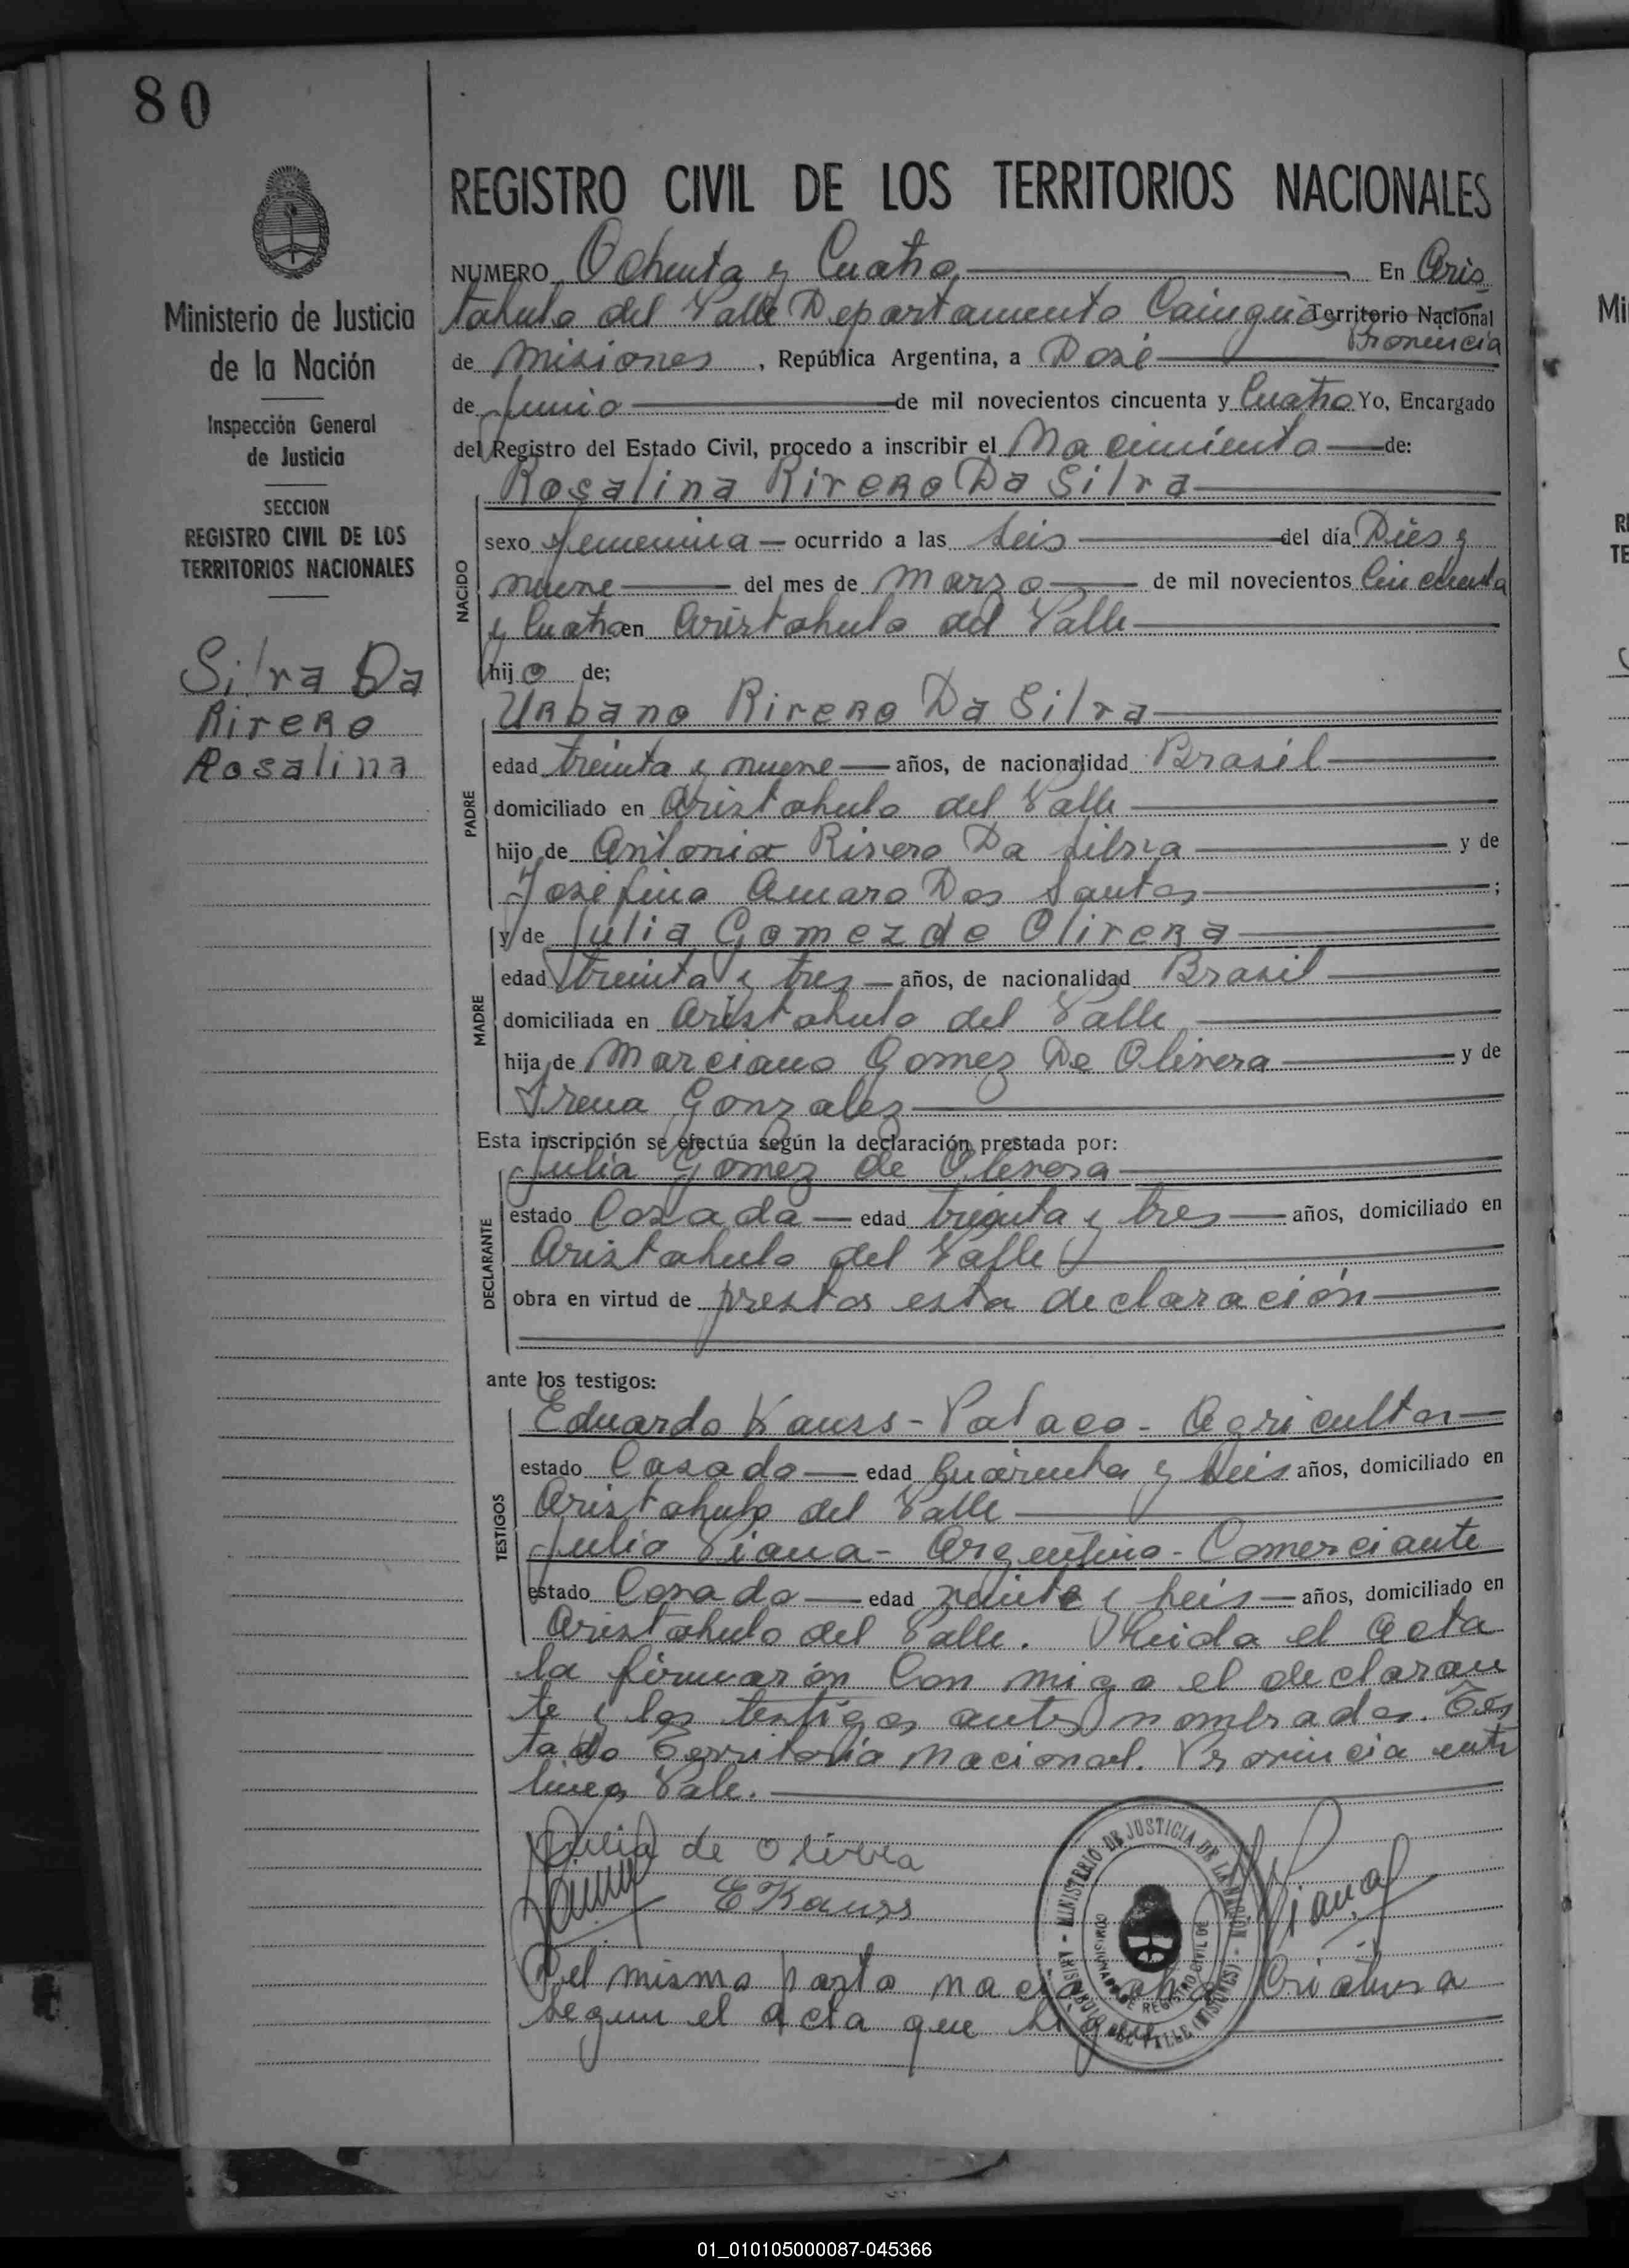 80
Ministerio de Justicia
de la Nación
Inspección General
de Justicia
SECCION
REGISTRO CIVIL DE LOS
TERRITORIOS NACIONALES
Silva Da
Rivero
Rosalina
REGISTRO CIVIL DE LOS TERRITORIOS NACIONALES
NUMERO Ochenta y Cuatro En Aris
tobulo del Valle Departamento Cainguas Territorio Nacional
Provincia
de Misiones, República Argentina, a Dose
de Junio de mil novecientos cincuenta y Cuatro Yo, Encargado
del Registro del Estado Civil, procedo a inscribir el Nacimiento de:
NACIDO
Rosalina Rivero Da Silva
sexo femenina ocurrido a las seis del día Dies y
nueve del mes de Marzo de mil novecientos Cincuenta
y Cuatro en Aristobulo del Valle
hijo de;
PADRE
Urbano Rivero Da Silva
edad treinta y nueve años, de nacionalidad Brasil
domiciliado en Aristobulo del Valle
hijo de Antonio Rivero Da Silva y de
Josefina Amaro Dos Santos;
MADRE
y de Julia Gomez de Olivera
edad treinta y tres años, de nacionalidad Brasil
domiciliada en Aristobulo del Valle
hija de Marciano Gomez De Olivera y de
Irena Gonzalez
Esta inscripción se efectúa según la declaración prestada por:
DECLARANTE
Julia Gomez de Olivera
estado Casada edad treinta y tres años, domiciliado en
Aristobulo del Valle
obra en virtud de prestar esta declaración
ante los testigos:
TESTIGOS
Eduardo Kauss - Polaco - Agricultor
estado Casado edad Cuarenta y seis años, domiciliado en
Aristobulo del Valle
Julio Viana - Argentino - Comerciante
estado Casado edad veinte y seis años, domiciliado en
Aristobulo del Valle. Leida el Acta
la firmarón Con migo el declaran
te y los testigos antes nombrados. Tes
tado Territorio Nacional. Provincia entre
lineas Vale.
Julia de Olivera
E Kauss
Viana
Del mismo parto nacio otra Criatura
segun el acta que sigue
MINISTERIO DE JUSTICIA DE LA NACION
COMISIONADO DE REGISTRO CIVIL DE
ARISTOBULO DEL VALLE (MISIONES)
01_010105000087-045366